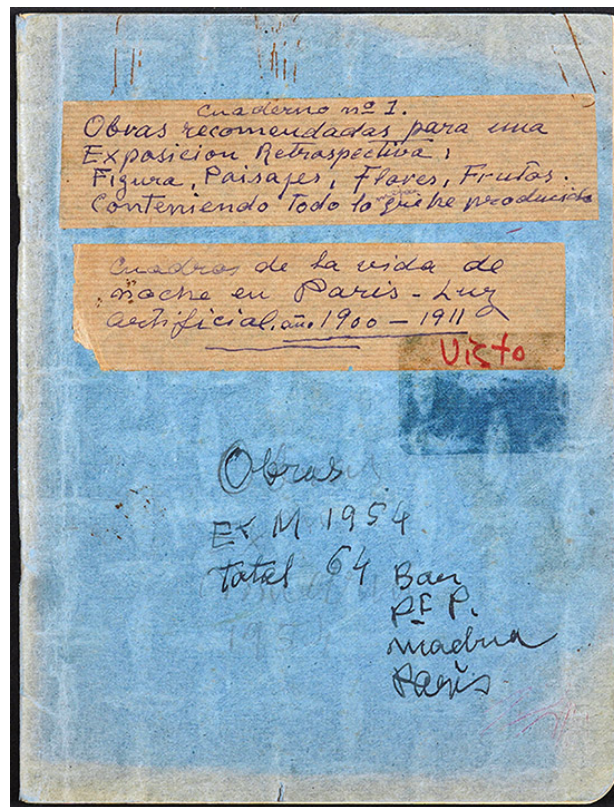 Cuaderno nº 1.
Obras recomendadas para una
Exposicion Retrospectiva:
Figura, Paisajes, Flores, Frutos.
Conteniendo Todo lo que he producido
Cuadros de la vida de
noche en Paris - Luz
artificial. año 1900 - 1911
Visto
Obras
Ex M 1954
total 64
Bar
P. P.
Madrid
París